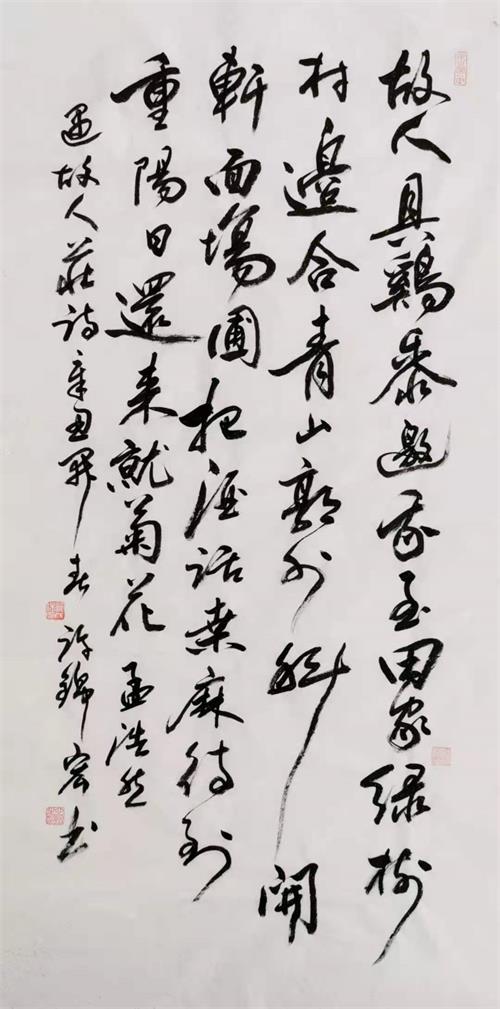 故人具鷄黍邀我至田家綠樹
村邊合青山郭外斜開
軒面場圃把酒話桑麻待到
重陽日還来就菊花 孟浩然
過故人莊詩辛丑春 許錦宏书